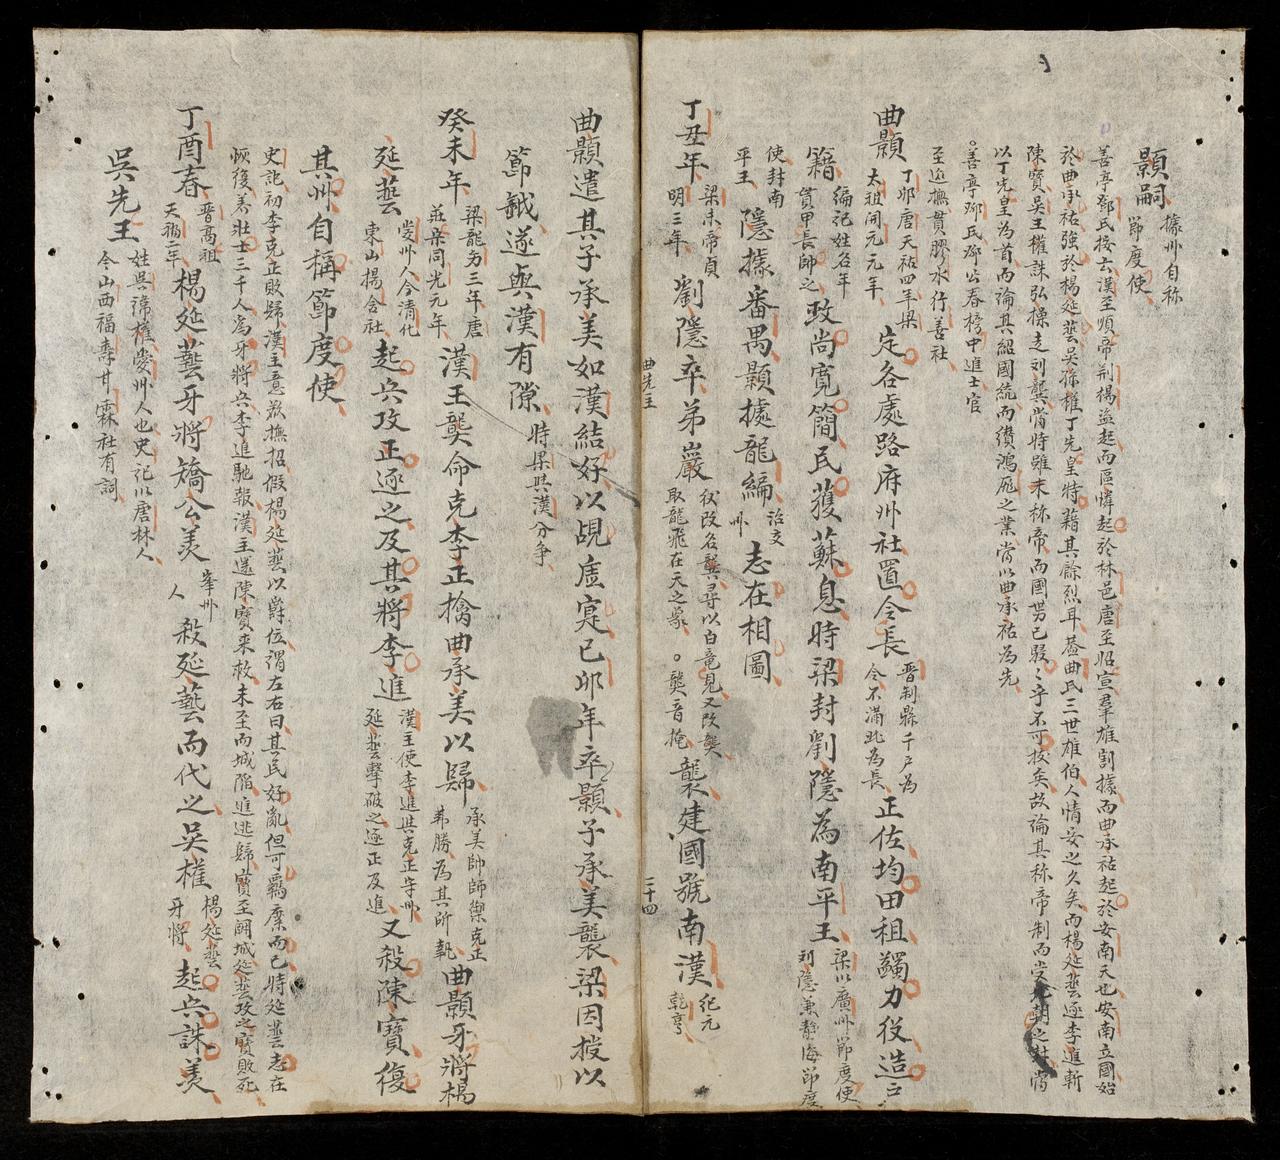 顥嗣 據州自称節度使
善亭鄧氏按云漢至順帝荆楊盗起而區憐起於林邑唐至昭宣羣雄割據而曲承祐起於安南天也安南立國始
於曲承祐強於楊延藝吴孫權丁先皇特藉其餘烈耳蓋曲氏三世雄伯人情安之久矣而楊延藝逐李進斬
陳寶吴王權誅弘操走刘龑當時雖未称帝而國势已駸〻乎不可按矣故論其称帝制而受朝之社當
以丁先皇為首而論其紹國統而纘鴻厖之業當以曲承祐為先
善亭鄧氏鄧公春榜中進士官
至巡撫貫膠水行善社
曲顥 丁卯唐天祐四年梁太祖開元元年 定各處路府州社置令長 晋制縣千戸為令不滿此為長 正佐均田租蠲力役造戸
籍 編记姓名年貫甲長帥之 政尚寬簡民獲蘇息時梁封劉隱為南平王 梁以廣州節度使刘隱兼静海節度
使封南平王 隱據番禺顥據龍編 治交州 志在相圖
丁丑年 梁末帝貞明三年 劉隱卒弟嚴 仪改名龔尋以白竜見又改龑取龍飛在天之象 龑音掩 襲建國號南漢 纪元乾亨
曲先主
二十四
曲顥遣其子承美如漢結好以覘虚寔已卯年卒顥子承美襲梁因授以
節鉞遂與漢有隙 時梁與漢分争
癸未年 梁龍为三年唐莊宗同光元年 漢王龑命克李正擒曲承美以歸 承美帥師禦克正弗勝為其所執 曲顥牙將楊
延藝 爱州人今清化東山楊舍社 起兵攻正逐之及其將李進 漢主使李進與克正守州延藝擊破之逐正及進 又殺陳寶復
其州自稱節度使
史記初李克正敗歸漢主意欲撫招假楊延藝以爵位谓左右曰其民好亂但可羈縻而已時延藝志在
恢復养壮士三千人為牙將兵李進馳報漢主遣陳寶来救未至而城陷進逃歸寶至闘城延藝攻之寶敗死
丁酉春 晋高祖天福二年 楊延藝牙將矯公羡 峯州人 殺延藝而代之吴權 楊延藝牙將 起兵誅羡
吳先王 姓吳諱權爱州人也史记以唐林人今山西福寿甘霖社有詞